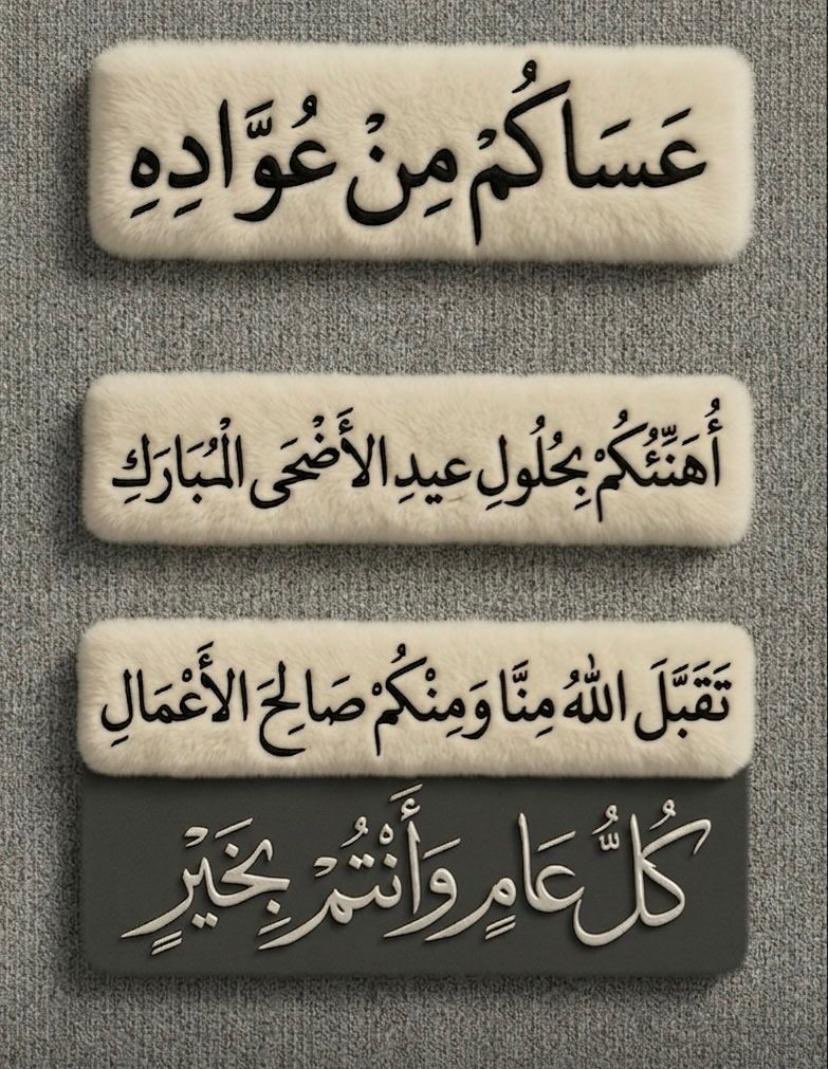 عَسَاكُمْ مِنْ عُوَّادِهِ
أُهَنِّئُكُمْ بِحُلُولِ عِيدِ الأَضْحَى الْمُبَارَكِ
تَقَبَّلَ اللهُ مِنَّا وَمِنْكُمْ صَالِحَ الأَعْمَالِ
كُلُّ عَامٍ وَأَنْتُمْ بِخَيْرٍ